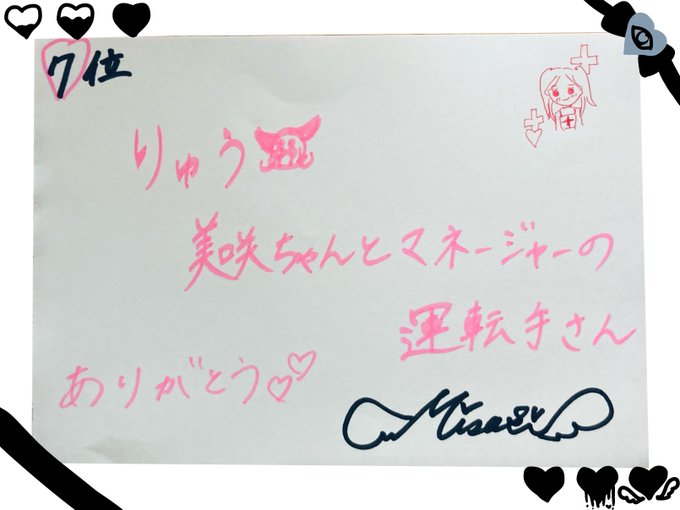 7位
りゅう
美咲ちゃんとマネージャーの
運転手さん
ありがとう♡♡
Misaki